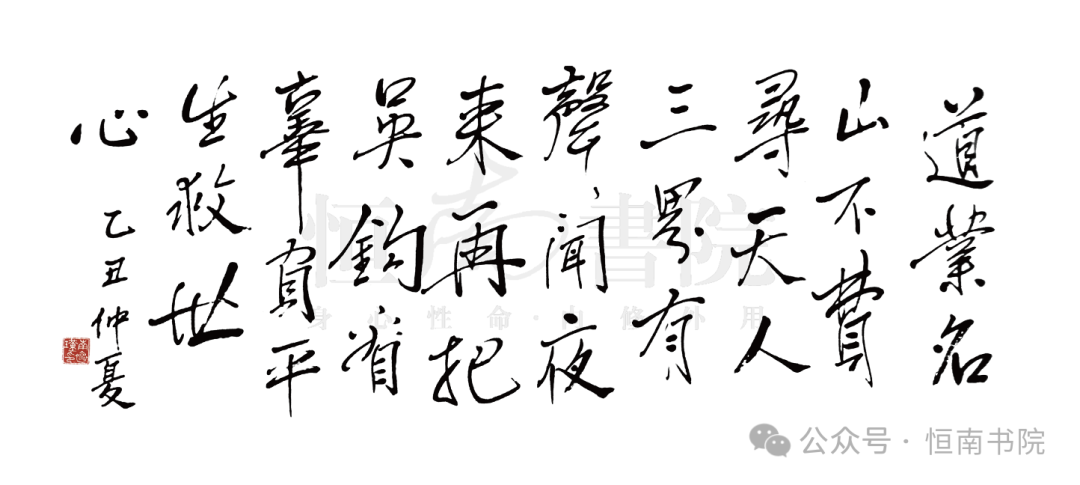 道業名
山不費
尋天人
三界有
聲聞夜
来再把
吳鈎看
辜負平
生救世
心
乙丑仲夏
恒南書院
身心性命·内修外用
公众号·恒南书院